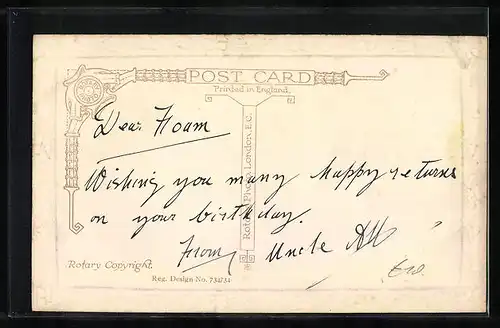 POST CARD
Printed in England.
Dear
Wishing you many happy returns
on your birthday.
From Uncle Alf
Rotary Photo, London, E.C.
Rotary Copyright.
Reg. Design No. 734731